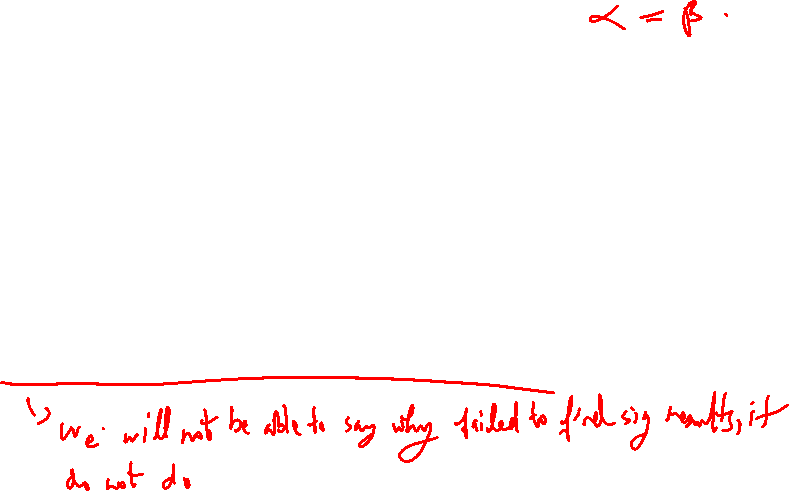 α = β .
1) we will not be able to say why failed to find sig results, if
do not do